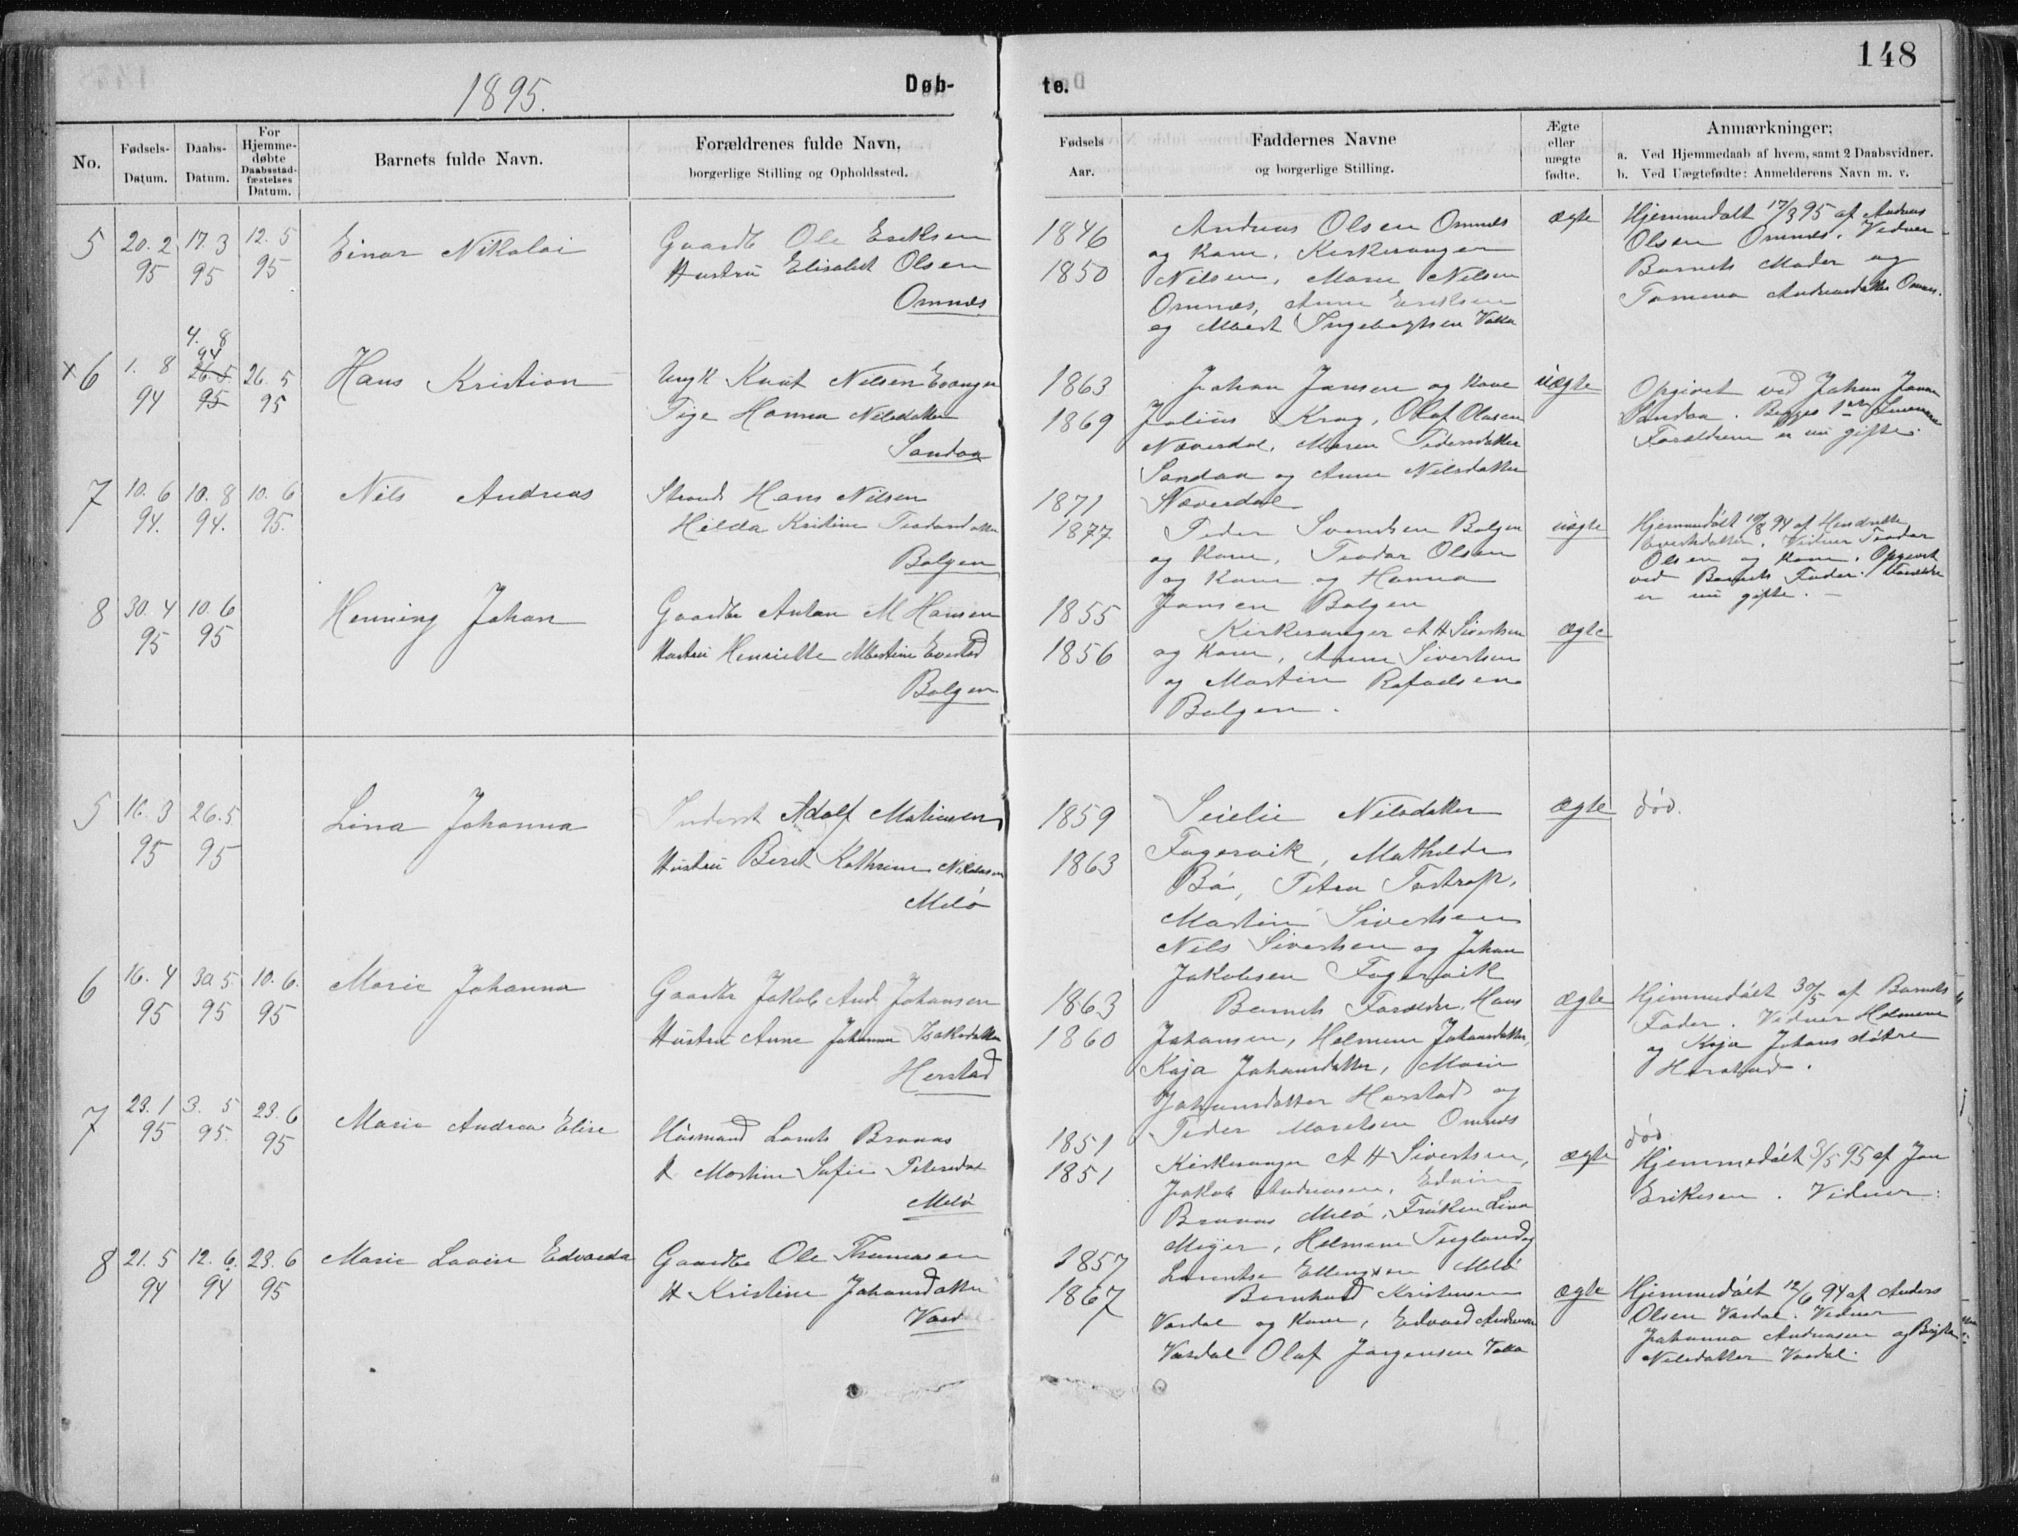 148
1895.
Døb- te.
No.
Fødsels-
Datum.
Daabs-
Datum.
For
Hjemme-
døbte
Daabsstad-
fæstelses
Datum.
Barnets fulde Navn.
Forældrenes fulde Navn,
borgerlige Stilling og Opholdssted.
Fødsels
Aar.
Faddernes Navne
og borgerlige Stilling.
Ægte
eller
uægte
fødte.
Anmærkninger;
a. Ved Hjemmedaab af hvem, samt 2 Daabsvidner.
b. Ved Uægtefødte: Anmelderens Navn m. v.
5
20. 2
95
17. 3
95
12. 5
95
Einar Nikolai
Gaardbr Ole Eriksen
Hustru Elisabet Olsen
Omnæs
1846
1850
Andreas Olsen Omnæs
og Kone, Kirkesanger
Nilsen, Maren Nilsen
Omnæs, Anne Eriksen
og Albert Ingebrigtsen
ægte
Hjemmedøbt 17/3 95 af Andreas
Olsen Omnæs. Vidner
Barnets Moder og
Andreasdatter Omnæs.
x 6
1. 8
94
4. 8
94
26. 5
95
26. 5
95
Hans Kristian
Ungk Knut Nilsen Evangen
Pige Hanna Nilsdatter
Sandaa
1863
1869
Johan Jansen og Kone
Julius Krog, Olaf Olsen
Næverdal, Maren Pedersdatter
Sandaa og Anne Nilsdatter
Næverdal
uægte
Opgivet ved Johan Jansen
Sandaa. Begges 1ste
Forældrene er nu gifte.
7
10. 6
94.
10. 8
94.
10. 6
95.
Nils Andreas
Hans Nilsen
Helda Kristine Teodorsdatter
Bolgen
1871
1877
Peder Svendsen Bolgen
og Kone, Teodor Olsen
og Kone og Hanna
Jansen Bolgen
uægte
Hjemmedøbt 10/8 94 af
Vidner Teodor
Olsen og Kone. Opgivet
ved Barnets Fader. Forældre
er nu gifte. –
8
30. 4
95
10. 6
95
Henning Johan
Gaardbr Anton M Hansen
Hustru Henriette Albertine
Bolgen
1855
1856
Kirkesanger A H Sivertsen
og Kone, Anne Sivertsen
og Martin Rafaelsen
Bolgen.
ægte
5
16. 3
95
26. 5
95
Lina Johanna
Inderst Adolf Matiusen
Hustru Beret Kathrine Nikolaisen
Melø
1859
1863
Nilsdatter
Fagervik, Mathilde
Bø, Petra Tostrop,
Martin Sivertsen
Nils Sivertsen og Johan
Jakobsen Fagervik
ægte
død.
6
16. 4
95
30. 5
95
10. 6.
95
Marie Johanna
Gaardbr Jakob And. Johansen
Hustru Anne Johanna Isaksdatter
Herstad
1863
1860
Barnets Forældre, Hans
Johansen, Helmine Johansdatter,
Kaja Johansdatter, Marie
Johansdatter Herstad og
Peder Omnæs
ægte
Hjemmedøbt 30/5 af Barnets
Fader. Vidner Helmine
og Kaja Johans døtre
Herstad.
7
23. 1
95
3. 5
95.
23. 6
95
Marie Andrea Elise
Husmand Braaas
H Martine Sofie
Melø
1851
1851
Kirkesanger A H Sivertsen,
Jakob Andreasen, Edvin
Melø, Frøken Lina
Meyer, Helmine
Lorentse Ellingsen Melø
ægte
død
Hjemmedøbt 3/5 95 af Jon
Eriksen. Vidner:
8
21. 5
94
12. 6.
94
23. 6
95
Marie Lovise Edvarda
Gaardbr Ole Thomasen
H Kristine Johansdatter
1857
1867
Bernhard Kristensen
Vardal og Kone, Edvard Andreasen
Vardal Olaf Jørgensen
ægte
Hjemmedøbt 12/6 94 af Anders
Olsen Vardal. Vidner
Johanna Andreasen og
Nilsdatter Vardal.